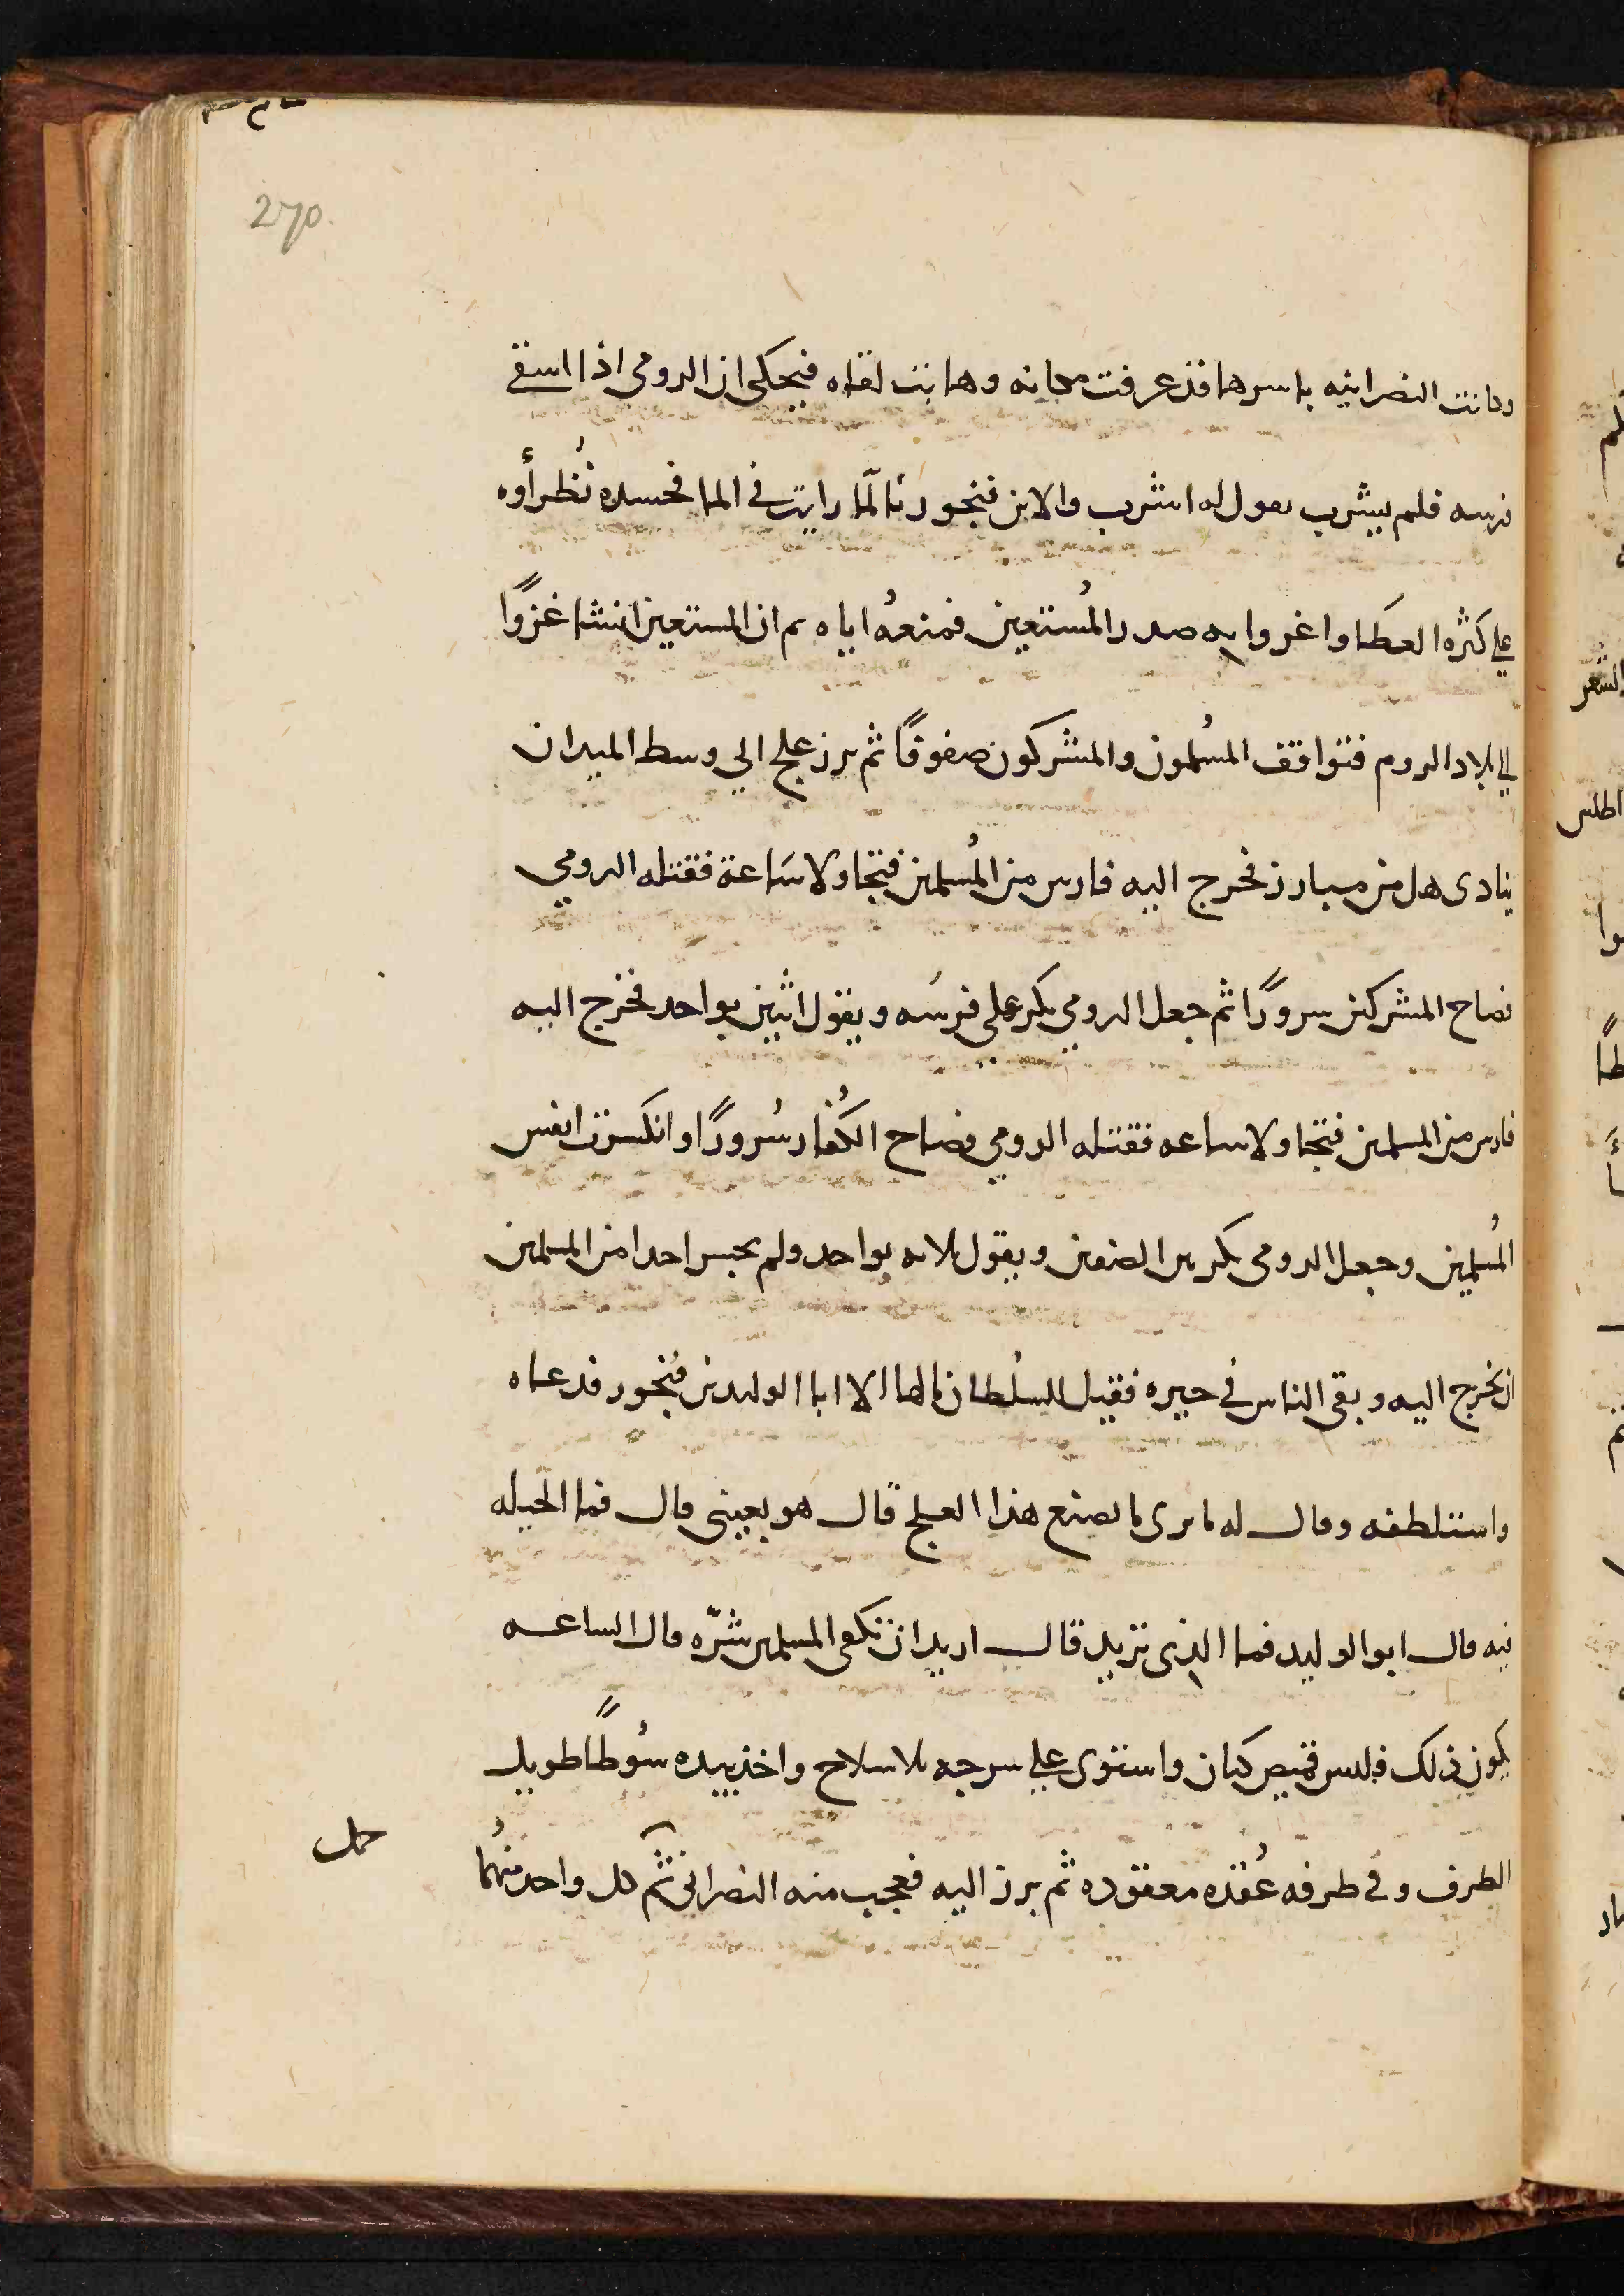 270.
وكانت النصرانيه باسرها قد عرفت مكانه وهابت لقاه فيحكى ان الرومى اذا اسقى
فرسه فلم يشرب يقول له اشرب والا بن فيحور نا لما رايت فى الما فحسده نُظرأوه
على كثره العطا واغروا به صدر المُستعين فمنعهُ اياه ثم ان المستعين انشا غزوًا
الى بلاد الروم فتواقف المسُلمون والمشركون صفوفًا ثم برز علج الى وسط الميدان
ينادى هل من مبارز فخرج اليه فارس من المُسلمين فتجاولا سَاعة فقتله الرومي
فصاح المشركين سرورًا ثم جعل الرومي يكر على فرسه ويقول اثنين بواحد فخرج اليه
فارس من المسلمين فتجاولا ساعه فقتله الرومي وصاح الكُفار سُرورًا وانكسرت انفس
المُسلمين وجعل الرومى يكر بين الصفين ويقول ثلاثه بواحد ولم يجسر احدا من المسلمين
ان يخرج اليه وبقى الناس فى حيره فقيل للسُلطان مالها الا ابا الوليد بن فيحور فدعاه
واستلطفه وقال له ما ترى ما يصنع هذا العلج قال هو بعينى قال فما الحيله
فيه قال ابو الوليد فما الذى تريد قال اريد ان تكفى المسلمين شرّه قال الساعه
يكون ذلك فلبس قميص كتان واستوى على سرجه بلا سلاح واخذ بيده سُوطًا طويل
الطرف وفى طرفه عُقده معقوده ثم برز اليه فعجب منه النصرانى ثم كل واحد منهُما
حمل